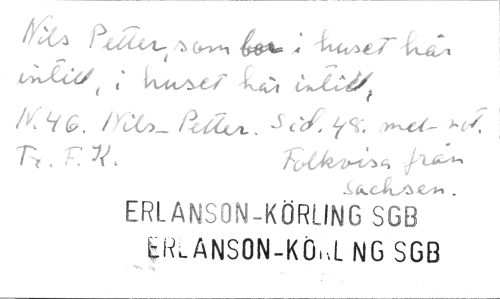 Nils Petter, som bor i huset här
intill, i huset här intill,
N. 46. Nils-Petter. Sid. 48. met-not.
Tr. F. K. Folkvisa från
Sachsen.
ERLANSON-KÖRLING SGB
ERLANSON-KÖRLING SGB